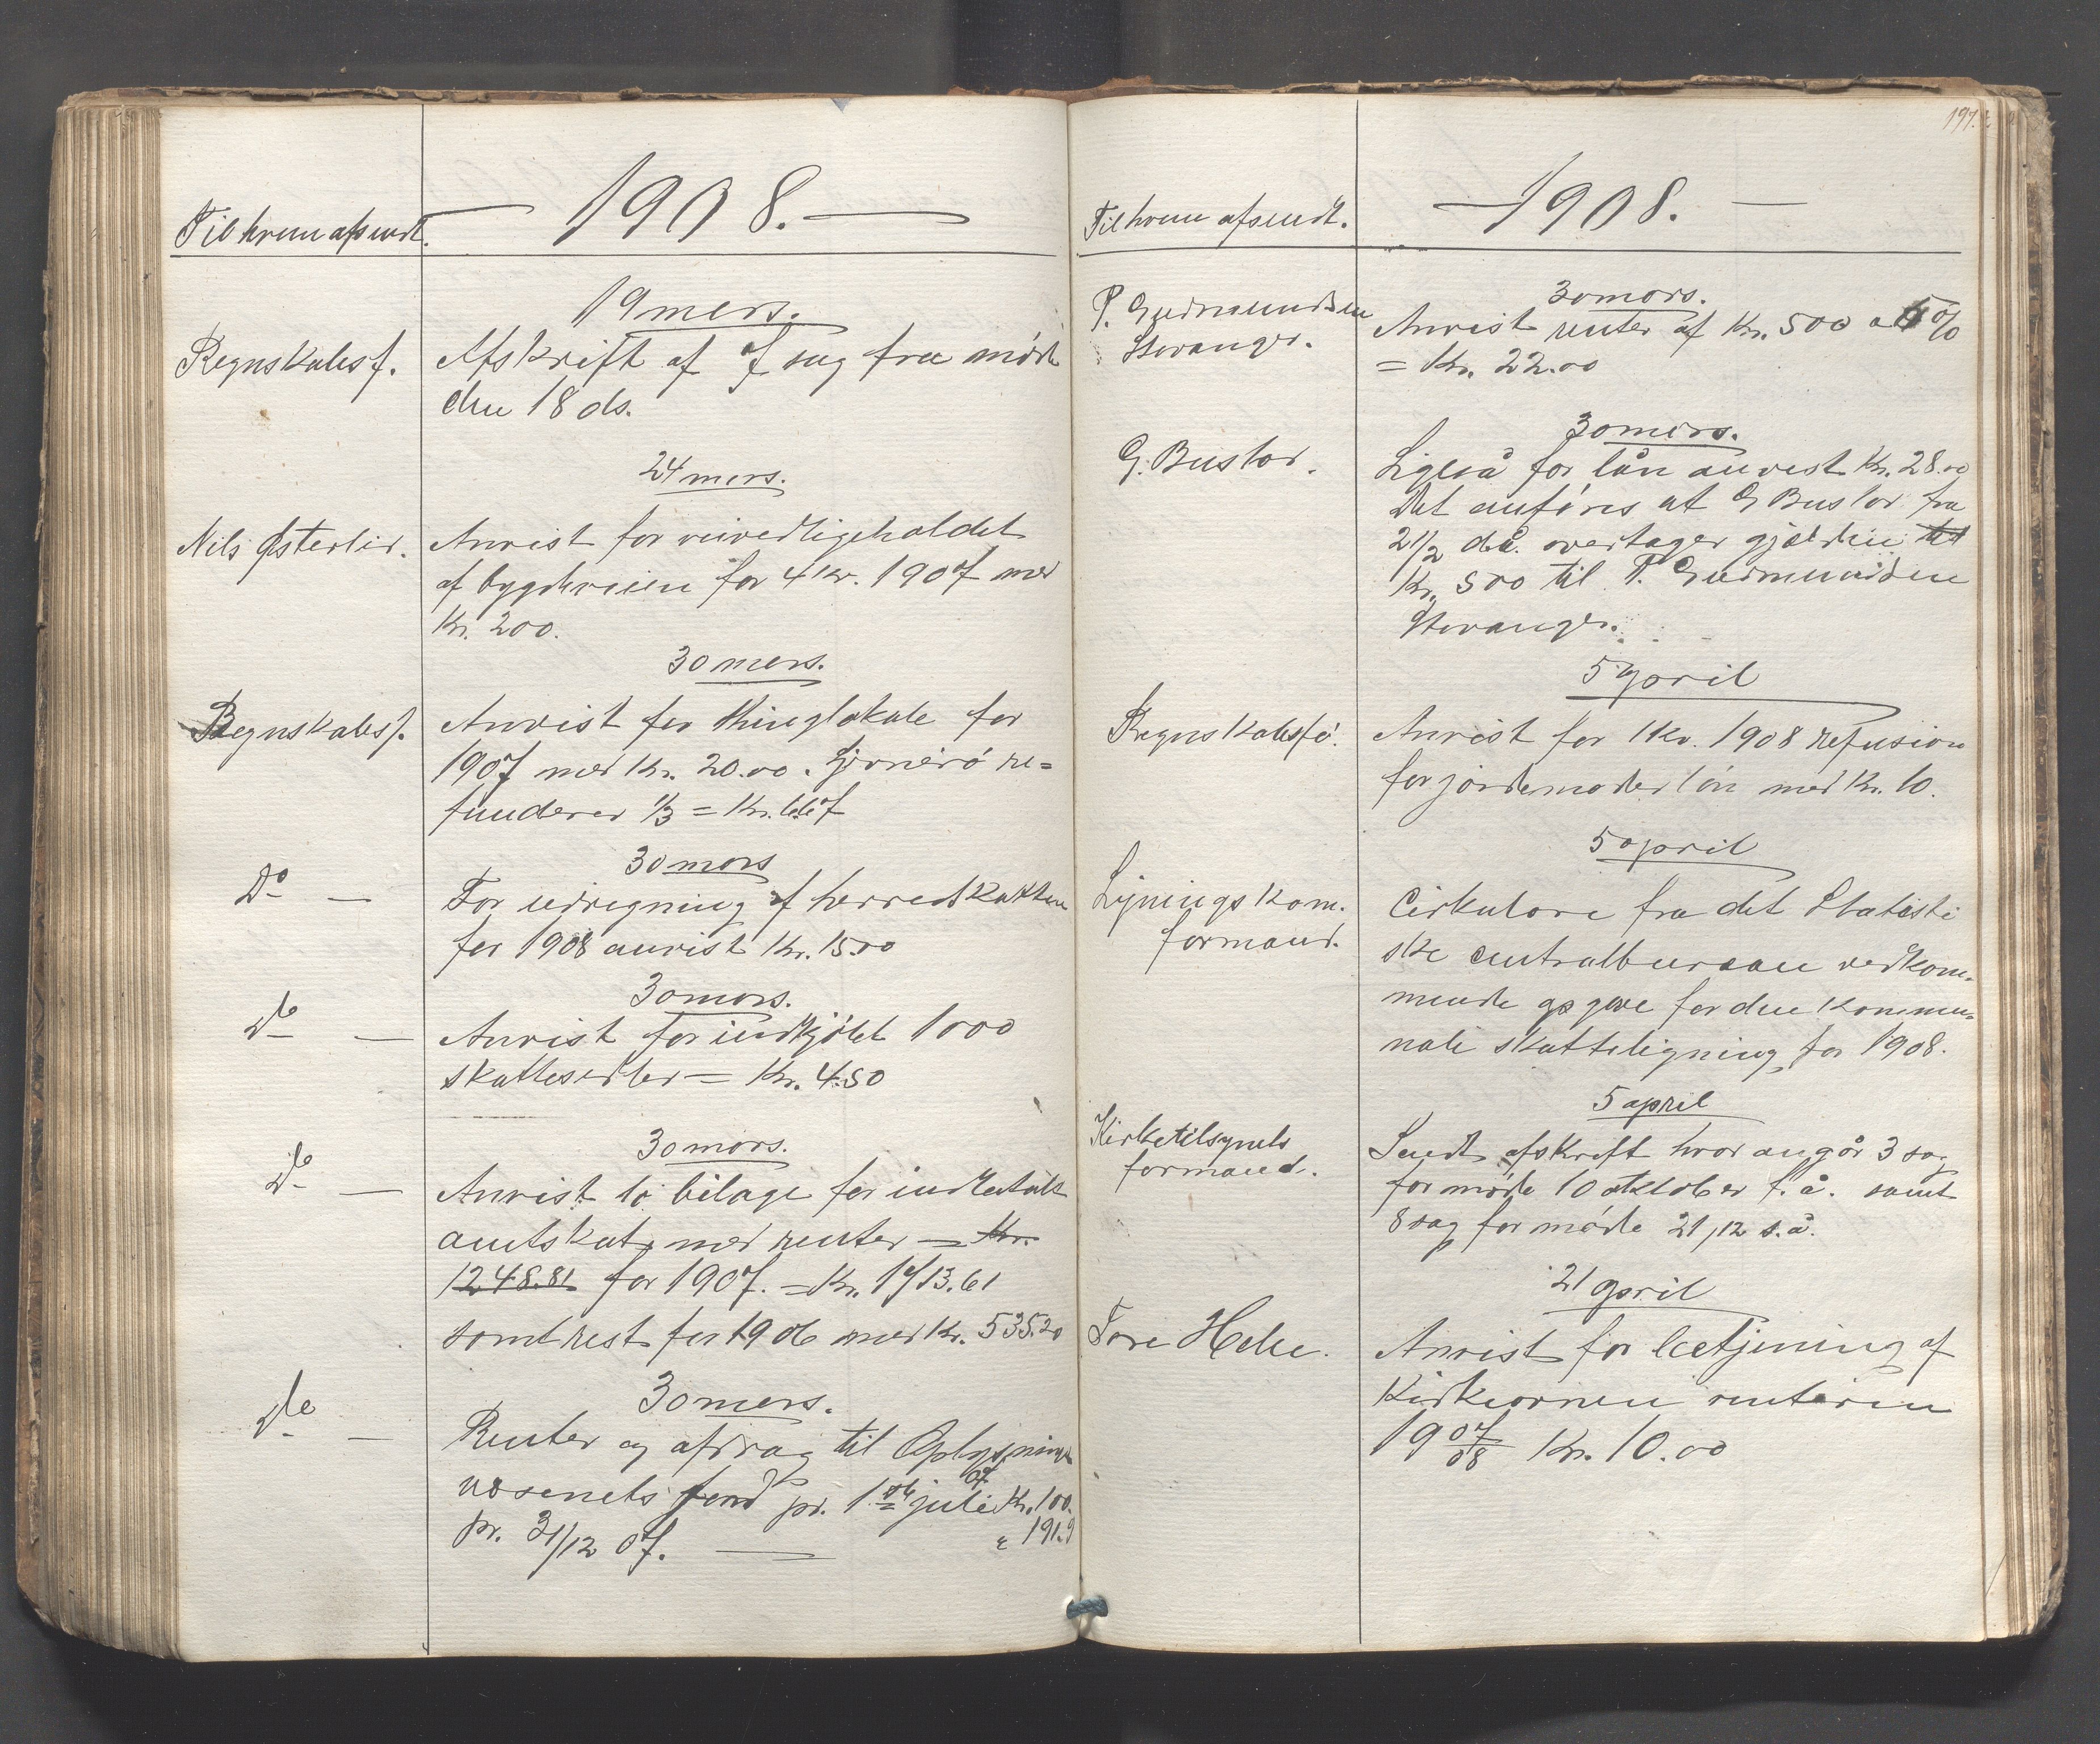 Til hvem afsendt.
— 1908. —
19 mars.
Regnskabsf.
Afskrift af 7 sag fra møde
den 18 ds.
24 mars.
Nils Østerlid.
Anvist for veivedligeholdet
af bygdeveien for 4 kv. 1907 med
Kr. 200.
30 mars.
Regnskabsf.
Anvist for thinglokale for
1907 med Kr. 20.00. re=
funderer 1/3 = Kr. 6.67
30 mars
Do —
For udregning af herredskatten
for 1908 anvist Kr. 15.00
30 mars.
do —
Anvist for indkjöbt 1000
skattesedler = Kr. 4.50
30 mars.
do —
Anvist 10 bilage for indbetalt
amtskat med renter — Kr.
1248.81 for 1907. = Kr. 1713.61
samt rest for 1906 med Kr. 535.20
30 mars.
do —
Renter og afdrag til Oplysnings
væsenets fond pr. 1ste juli 07 Kr. 100.
pr. 31/12 07. — " 191.9
197.
Til hvem afsendt.
— 1908. —
30 mars.
P. Gudmundsen
Stavanger.
Anvist renter af Kr. 500 a %
= Kr. 22.00
30 mars.
G. Bustad.
Ligeså for lån anvist Kr. 28.00
Det anføres at G Bustad fra
21/2 d.å. overtager gjælden til
Kr. 500 til P. Gudmundsen
Stavanger.
5 april
Regnskabsfö.
Anvist for 1 Kv. 1908 refusion
for jordemoderlön med Kr. 10.
5 april
Ligningskom.
formand.
Cirkulære fra det Statisti
ske centralbureau vedkom-
mende opgave for den kommu-
nale skatteligning for 1908.
5 april
Kirketilsynets
formand.
Sendt afskrift hvor angår 3 sag
for møde 10 oktober f.å. samt
8 sag for møde 21/12 s.å.
21 april
Tore Helle.
Anvist for betjening af
Kirkeovnen vinteren
1907/08 Kr. 10.00